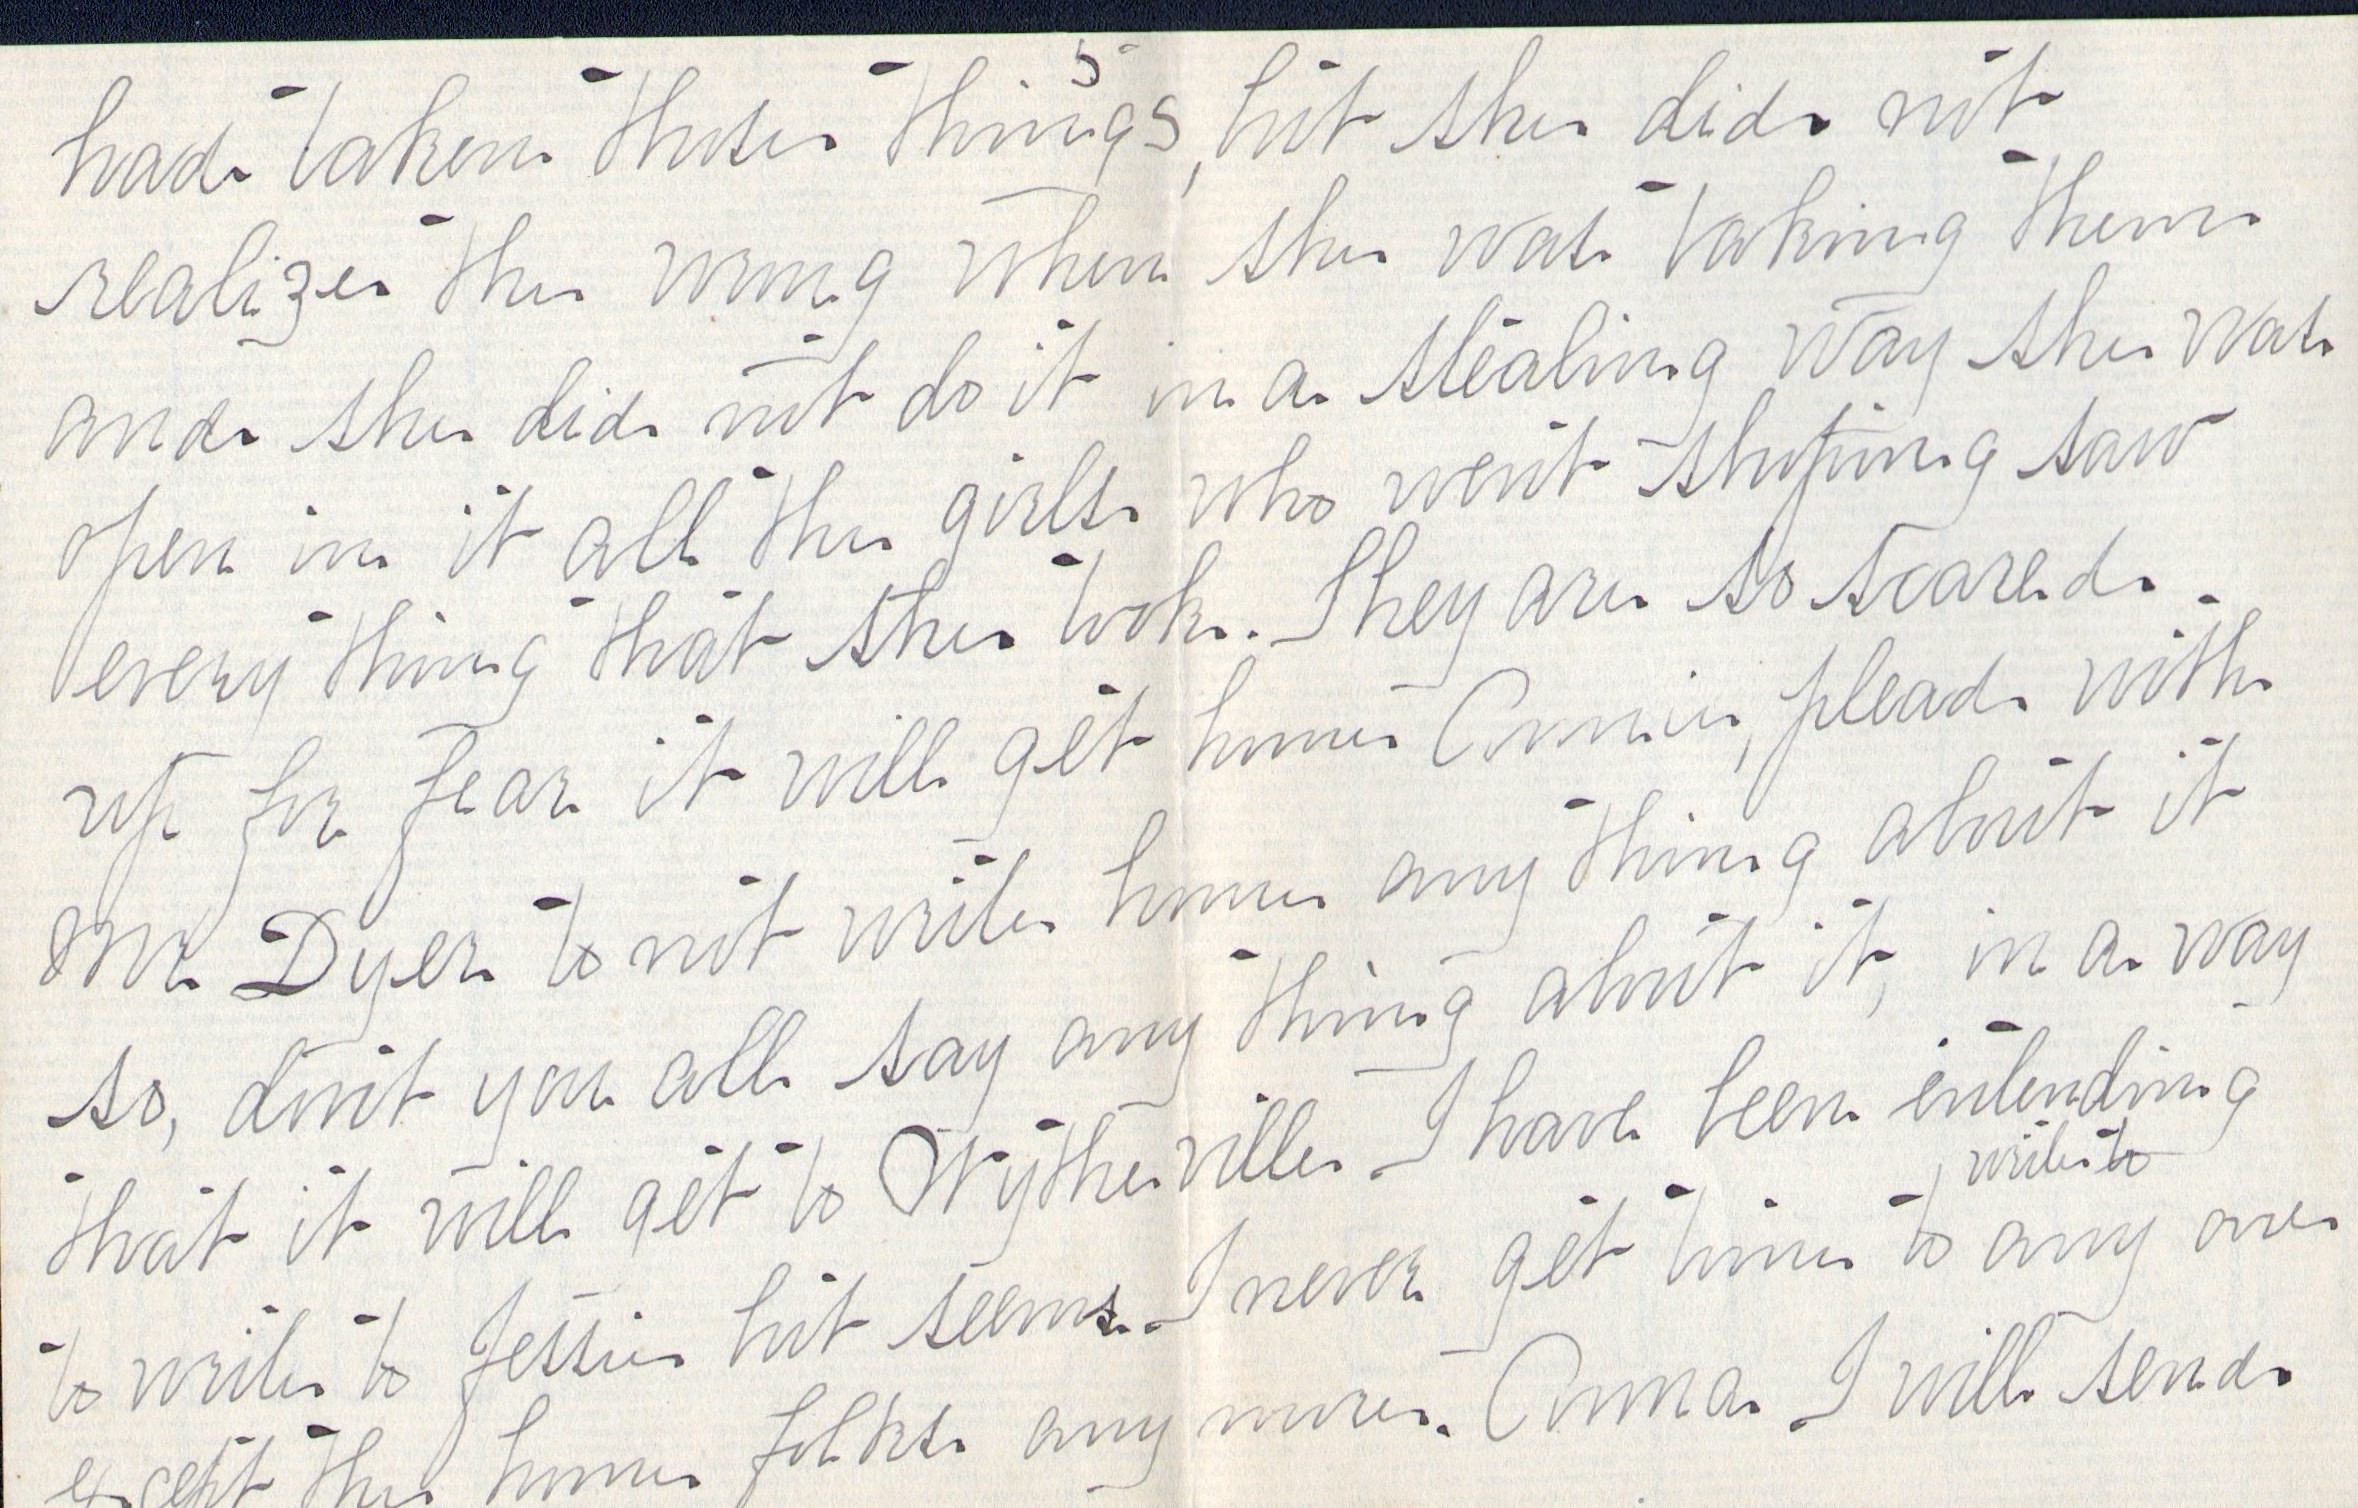 5
had taken those things, but she did not
realize the wrong when she was taking them
and she did not do it in a stealing way she was
open in it all the girls who went shoping saw
every thing that she took. They are so scared
up for fear it will get home Annie, plead with
Mr Dyer to not write home any thing about it
so, don't you all say any thing about it, in a way
that it will get to Wytheville. I have been intending
to write to Jessie but seems I never get time to write to any one
except the home folks any more. Anna I will send